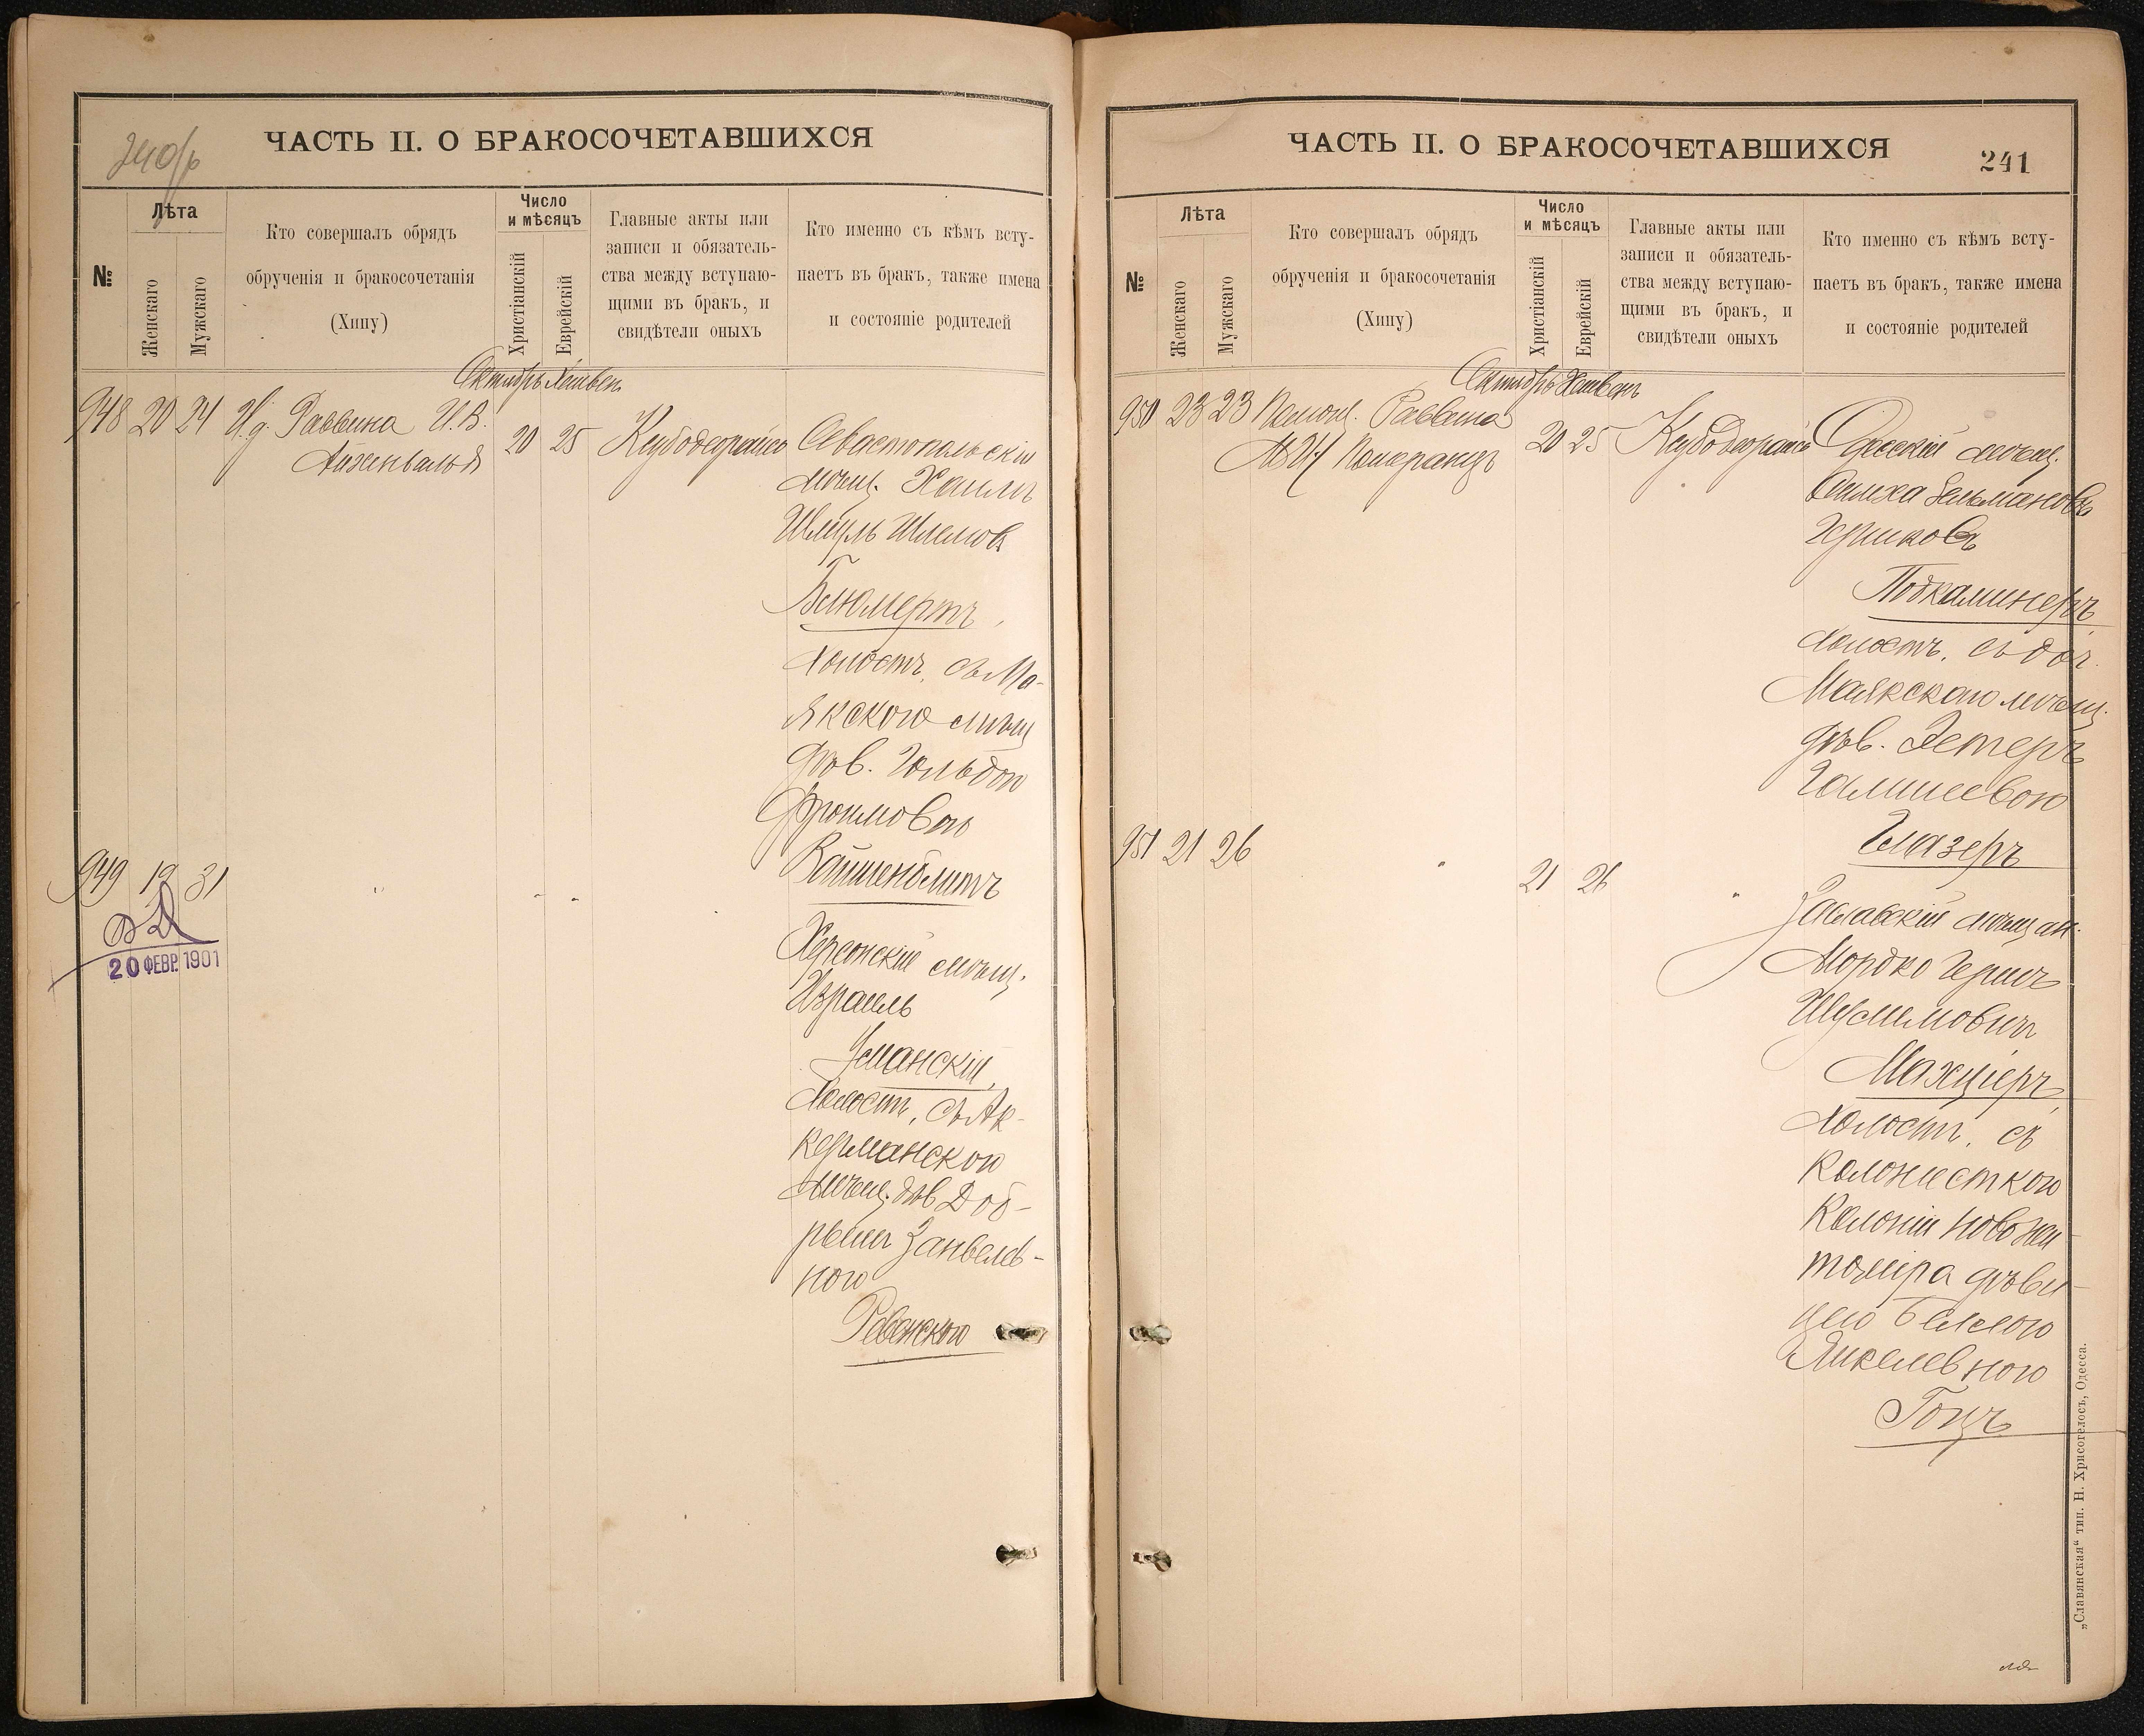 240/б
ЧАСТЬ II. О БРАКОСОЧЕТАВШИХСЯ
№
Лѣта
Женскаго
Мужскаго
Кто совершалъ обрядъ
обрученія и бракосочетанія
(Хипу)
Число
и мѣсяцъ
Христіанскій
Еврейскій
Главные акты или
записи и обязатель-
ства между вступаю-
щими въ бракъ, и
свидѣтели оныхъ
Кто именно съ кѣмъ всту-
паетъ въ бракъ, также имена
и состояніе родителей
Октябрь Хешвен
948 20 24 И.д. Раввина И.В.
Айзенвальд
20 25 Кубодедрайсо
Севастопольскій
мѣщ. Хаимъ
Шмуль Шлемов
Блюмертъ,
холостъ, съ Ма-
якскою мѣщ
дѣв. Гольдою
Фроимовою
Вайшенблитъ
949 19 31 " " " "
20 ФЕВР. 1901
Херсонскій мѣщ.
Израиль
Уманскій,
Холостъ, съ Ак-
керманскою
мѣщ. дѣв Доб-
рыш Занвелев-
ною
Ревенскою
ЧАСТЬ II. О БРАКОСОЧЕТАВШИХСЯ
241
№
Лѣта
Женскаго
Мужскаго
Кто совершалъ обрядъ
обрученія и бракосочетанія
(Хипу)
Число
и мѣсяцъ
Христіанскій
Еврейскій
Главные акты или
записи и обязатель-
ства между вступаю-
щими въ бракъ, и
свидѣтели оныхъ
Кто именно съ кѣмъ всту-
паетъ въ бракъ, также имена
и состояніе родителей
Октябрь Хешвенъ
950 23 23 Помощ. Раввина
Померанцъ
20 25 Кубодедрайсо
Одесскій мѣщ.
Симха Зельмановъ
Гершковъ
Подкаминеръ,
холостъ, съ доч.
Маякскаго мѣщ.
дѣв. Эстеръ
Галшеевою
Глазеръ
951 21 26 " 21 26 "
Заславскій мѣщан.
Мордко Гершъ
Шусмимовичъ
Махцеръ,
Холостъ, съ
колонисткою
Колоніи Новожи-
томіра дѣви-
цею Бейлою
Янкелевною
Гоцъ
„Славянская“ тип. Н. Хрисогелосъ, Одесса.